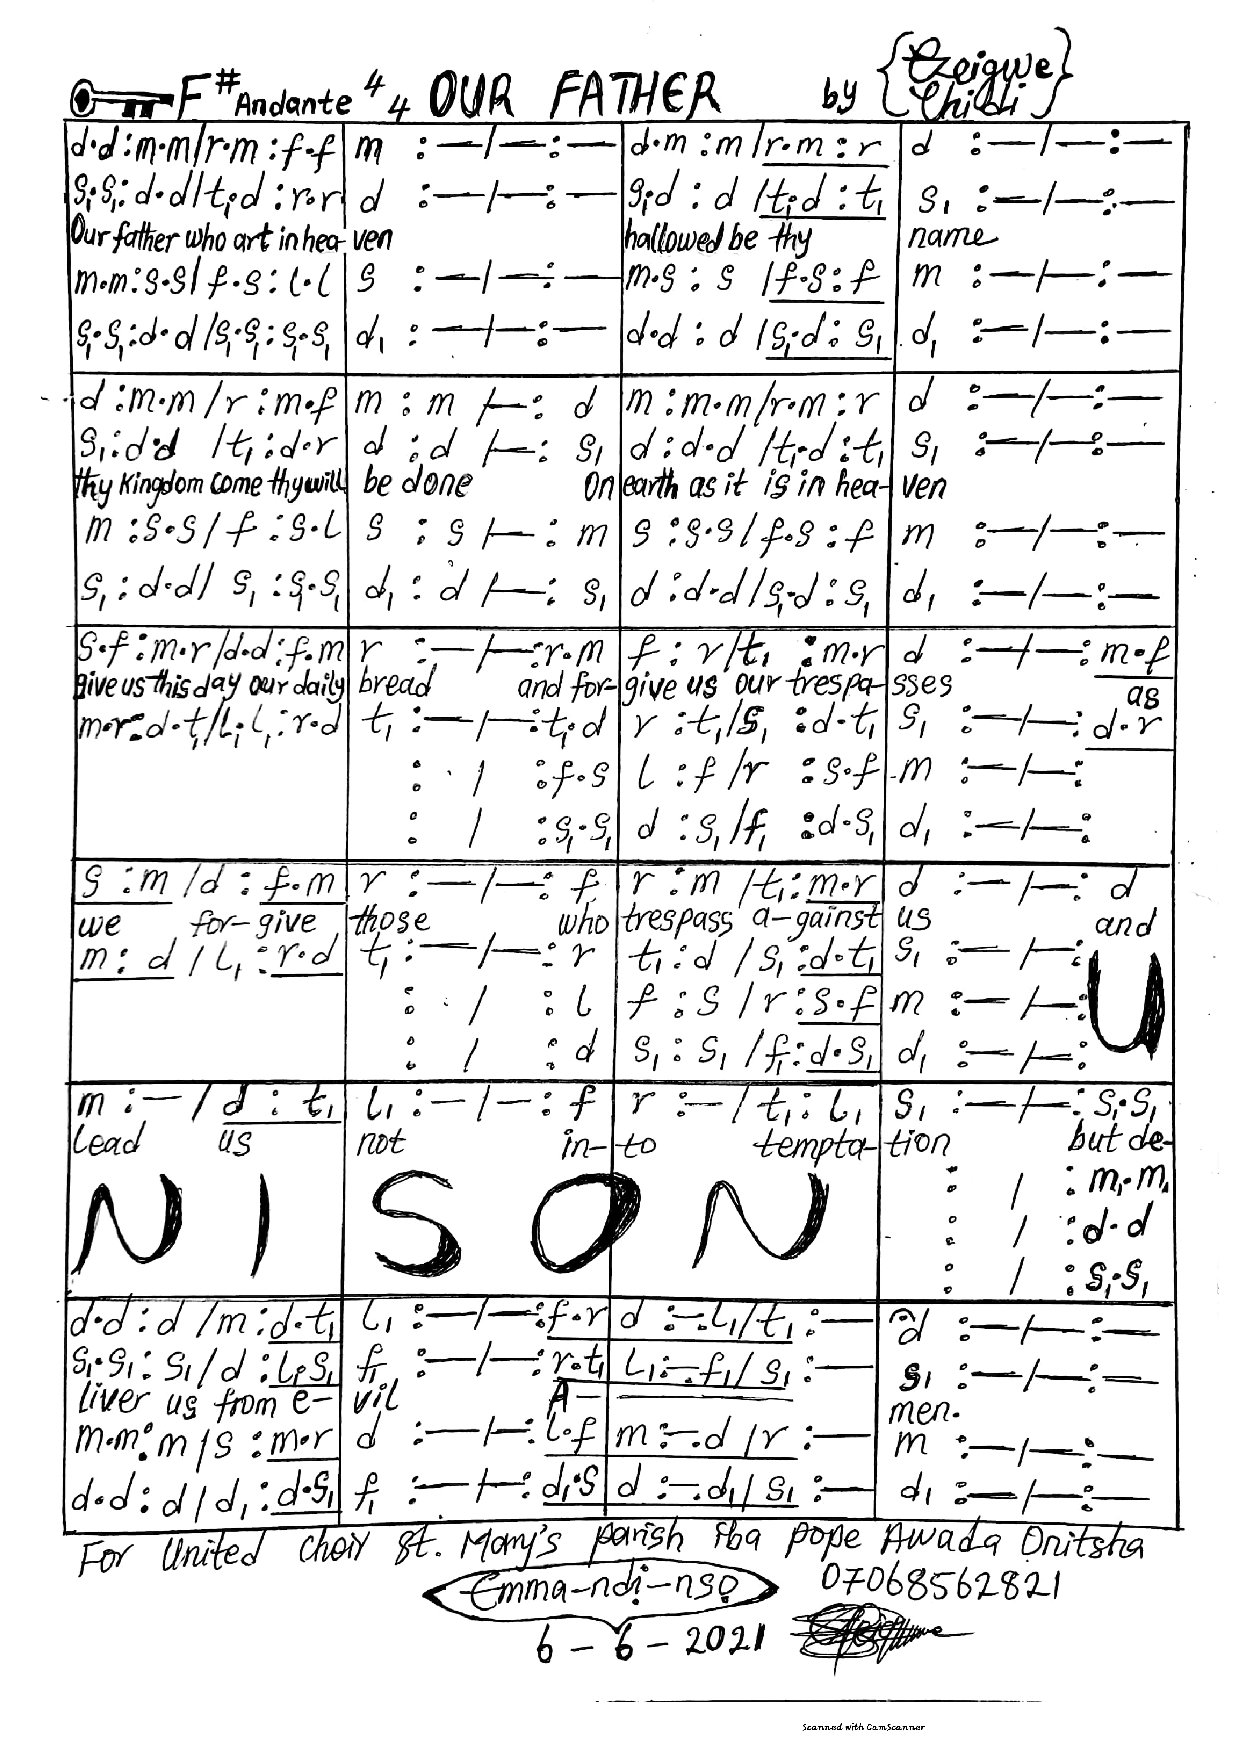 F# Andante 4/4 OUR FATHER by {Ezeigwe Chidi}
d.d:m.m/r.m:f.f | m :—/—:— | d.m:m/r.m:r | d :—/—:—
s₁.s₁:d.d/t₁.d:r.r | d :—/—:— | s₁.d:d/t₁.d:t₁ | s₁ :—/—:—
Our father who art in hea- ven hallowed be thy name
m.m:s.s/f.s:l.l | s :—/—:— | m.s:s/f.s:f | m :—/—:—
s₁.s₁:d.d/s₁.s₁:s₁.s₁ | d₁ :—/—:— | d.d:d/s₁.d:s₁ | d₁ :—/—:—
d:m.m/r:m.f | m:m/—:d | m:m.m/r.m:r | d :—/—:—
s₁:d.d/t₁:d.r | d:d/—:s₁ | d:d.d/t₁.d:t₁ | s₁ :—/—:—
thy Kingdom come thy will be done On earth as it is in hea- ven
m:s.s/f:s.l | s:s/—:m | s:s.s/f.s:f | m :—/—:—
s₁:d.d/s₁:s₁.s₁ | d₁:d/—:s₁ | d:d.d/s₁.d:s₁ | d₁ :—/—:—
s.f:m.r/d.d:f.m | r :—/—:r.m | f:r/t₁:m.r | d :—/—:m.f
give us this day our daily bread and for- give us our trespa- sses as
m.r:d.t₁/l₁.l₁:r.d | t₁ :—/—:t₁.d | r:t₁/s₁:d.t₁ | s₁ :—/—:d.r
: / :f.s | l:f/r:s.f | m :—/—:
: / :s₁.s₁ | d:s₁/f₁:d.s₁ | d₁ :—/—:
s:m/d:f.m | r :—/—:f | r:m/t₁:m.r | d :—/—:d
we for- give those who trespass a-gainst us and
m:d/l₁:r.d | t₁ :—/—:r | t₁:d/s₁:d.t₁ | s₁ :—/—:
: / :l | f:s/r:s.f | m :—/—:
: / :d | s₁:s₁/f₁:d.s₁ | d₁ :—/—:
U
m:—/d:t₁ | l₁:—/—:f | r:—/t₁:l₁ | s₁ :—/—:s₁.s₁
lead us not in- to tempta- tion but de-
N I S O N
: / :m₁.m₁
: / :d.d
: / :s₁.s₁
d.d:d/m:d.t₁ | l₁ :—/—:f.r | d:—.l₁/t₁:— | d :—/—:—
s₁.s₁:s₁/d:l₁.s₁ | f₁ :—/—:r.t₁ | l₁:—.f₁/s₁:— | s₁ :—/—:—
liver us from e- vil A- men.
m.m:m/s:m.r | d :—/—:l.f | m:—.d/r:— | m :—/—:—
d.d:d/d₁:d.s₁ | f₁ :—/—:d₁.s | d:—.d₁/s₁:— | d₁ :—/—:—
For United Choir St. Mary's parish Iba pope Awada Onitsha
Emma-ndi-nsọ 07068562821
6 - 6 - 2021
Scanned with CamScanner